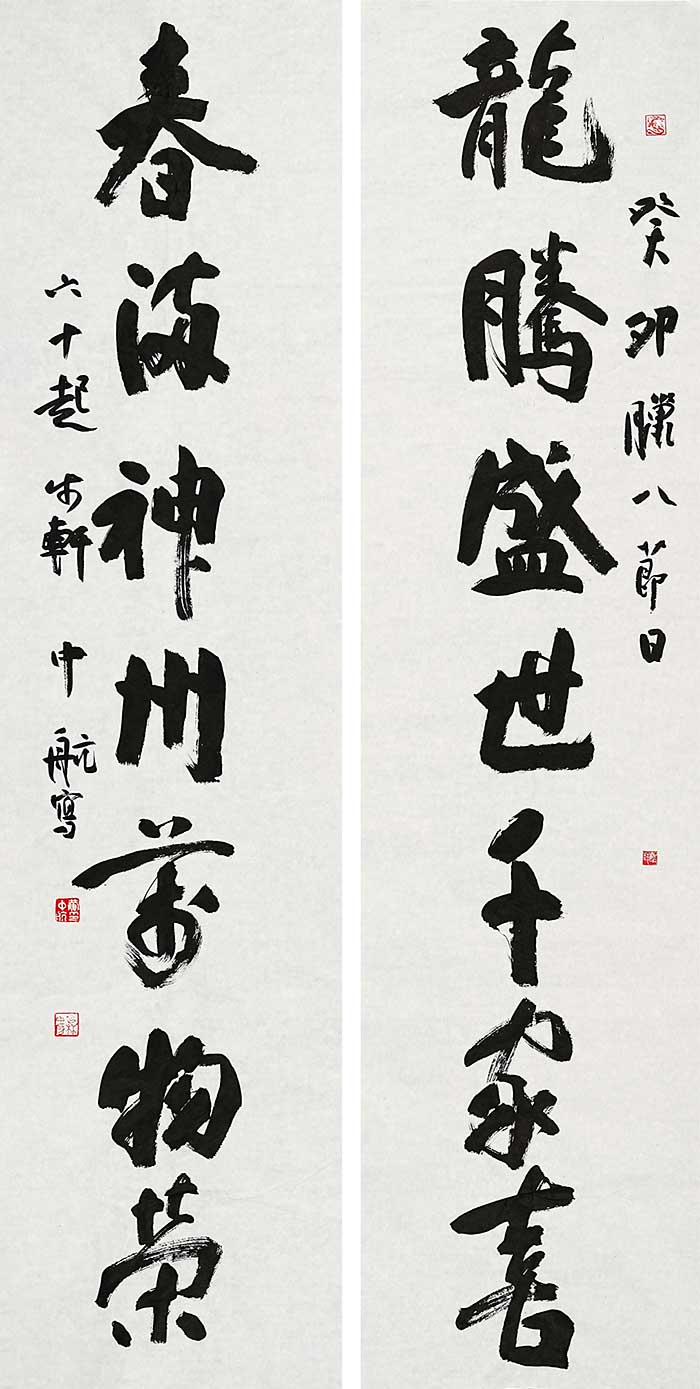 癸卯臘八節日
龍騰盛世千家喜
春滿神州萬物榮
六十起步軒中航寫